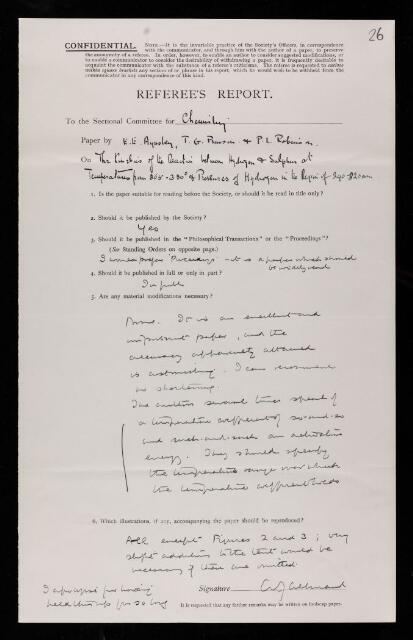 26
CONFIDENTIAL. NOTE.—It is the invariable practice of the Society's Officers, in correspondence
with the communicator, and through him with the author of a paper, to preserve
the anonymity of a referee. In order, however, to enable an author to consider suggested modifications, or
to enable a communicator to consider the desirability of withdrawing a paper, it is frequently desirable to
acquaint the communicator with the substance of a referee's criticisms. The referee is requested to enclose
within square brackets any section of or phrase in his report, which he would wish to be withheld from the
communicator in any correspondence of this kind.
REFEREE'S REPORT.
To the Sectional Committee for Chemistry
Paper by E.E. Aynsley, T. G. Pearson & P. L. Robinson
On The Kinetics of the Reaction between Hydrogen & Sulphur at
Temperatures from 305°-380° & Pressures of Hydrogen in the Region of
1. Is the paper suitable for reading before the Society, or should it be read in title only?
2. Should it be published by the Society?
Yes
3. Should it be published in the "Philosophical Transactions" or the "Proceedings"?
(See Standing Orders on opposite page.)
I would prefer 'Proceedings' - it is a paper which should
be widely read
4. Should it be published in full or only in part?
In full
5. Are any material modifications necessary?
None. It is an excellent and
important paper, and the
accuracy apparently attained
is astonishing. I can recommend
no shortening.
The authors several times speak of
a temperature coefficient of so-and-so
and such-and-such an activation
energy. They should specify
the temperature range over which
the temperature coefficient holds
6. Which illustrations, if any, accompanying the paper should be reproduced?
All except Figures 2 and 3; very
slight additions to the text would be
necessary if these are omitted
I apologise for having
held this up for so long
Signature
It is requested that any further remarks may be written on foolscap paper.